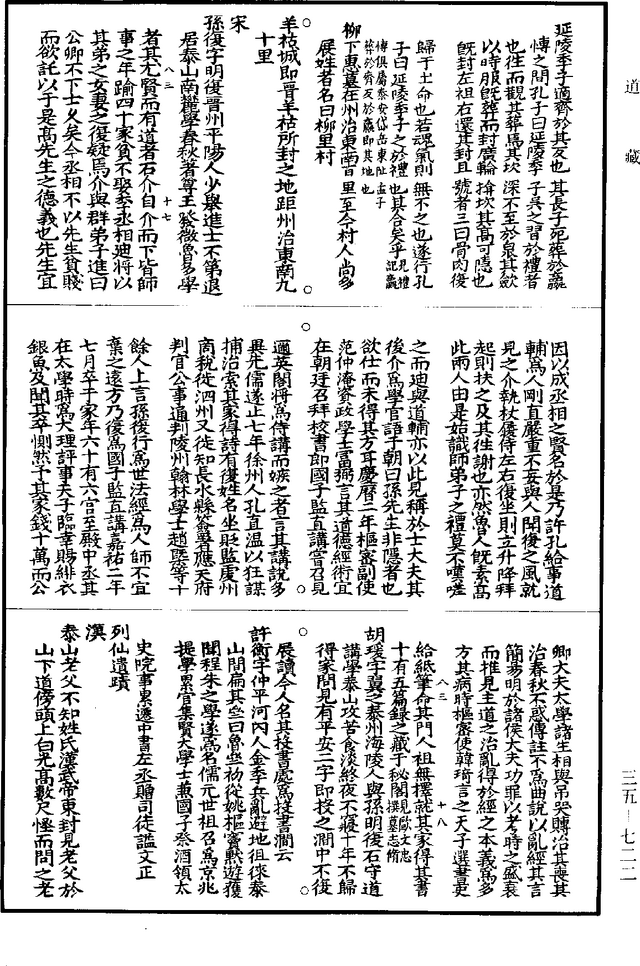 道藏
延陵季子適齊於其反也其長子死葬於嬴
博之間孔子曰延陵季子吳之習於禮者
也往而觀其葬焉其坎深不至於泉其歛
以時服既葬而封廣輪揜坎其高可隱也
既封左袒右還其封且號者三曰骨肉復
歸于土命也若魂氣則無不之也遂行孔
子曰延陵季子之於禮也其合矣乎見禮記嬴
博俱屬泰安岱岳東址孟子
葬於齊反於嬴即其地也
柳下惠墓在州治東南百里至今村人尚多
展姓者名曰柳里村
羊祜城即晉羊祜所封之地距州治東南九
十里
宋
孫復字明復晉州平陽人少舉進士不第退
居泰山南麓學春秋著尊王發微魯多學
八三 十七
者其尤賢而有道者石介自介而下皆師
事之年踰四十家貧不娶李丞相迪將以
其弟之女妻之復疑焉介與群弟子進曰
公卿不下士久矣今丞相不以先生貧賤
而欲託以子是高先生之德義也先生宜
因以成丞相之賢名於是乃許孔給事道
輔為人剛直嚴重不妄與人聞復之風就
見之介執杖屨侍左右復坐則立升降拜
起則扶之及其往謝也亦然魯人既素高
此兩人由是始識師弟子之禮莫不嘆嗟
之而迪與道輔亦以此見稱於士大夫其
後介為學官語于朝曰孫先生非隱者也
欲仕而未得其方耳慶曆二年樞密副使
范仲淹叅政學士富弼言其道德經術宜
在朝廷召拜校書郎國子監直講嘗召見
邇英閣將為侍講而嫉之者言其講說多
異先儒遂止七年徐州人孔直溫以狂謀
捕治索其家得詩有復姓名坐貶監虔州
商稅徙泗州又徙知長水縣簽署應天府
判官公事通判陵州翰林學士趙㮣等十
餘人上言孫復行為世法經為人師不宜
棄之遠方乃復為國子監直講嘉祐二年
七月卒于家年六十有六官至殿中丞其
在太學時為大理評事天子臨幸賜緋衣
銀魚及聞其卒惻然予其家錢十萬而公
卿大夫太學諸生相與弔哭賻治其喪其
治春秋不惑傳註不為曲說以亂經其言
簡易明於諸侯大夫功罪以考時之盛衰
而推見王道之治亂得於經之本義為多
方其病時樞密使韓琦言之天子選書吏
八三 十八
給紙筆命其門人祖無擇就其家得其書
十有五篇錄之藏于秘閣見歐文忠撰墓志脩
胡瑗字翼之泰州海陵人與孫明復石守道
講學泰山攻苦食淡終夜不寢十年不歸
得家問見有平安二字即投之澗中不復
展讀今人名其投書處為投書澗云
許衡字仲平河內人金季兵亂避地徂徠泰
山間扁其亝曰魯亝初從姚樞竇默遊獲
聞程朱之學遂為名儒元世祖召為京兆
提學累官集賢大學士兼國子祭酒領太
史院事累遷中書左丞贈司徒謚文正
列仙遺蹟
漢
泰山老父不知姓氏漢武帝東封見老父於
山下道傍頭上白光高數尺怪而問之老
三五－七二二